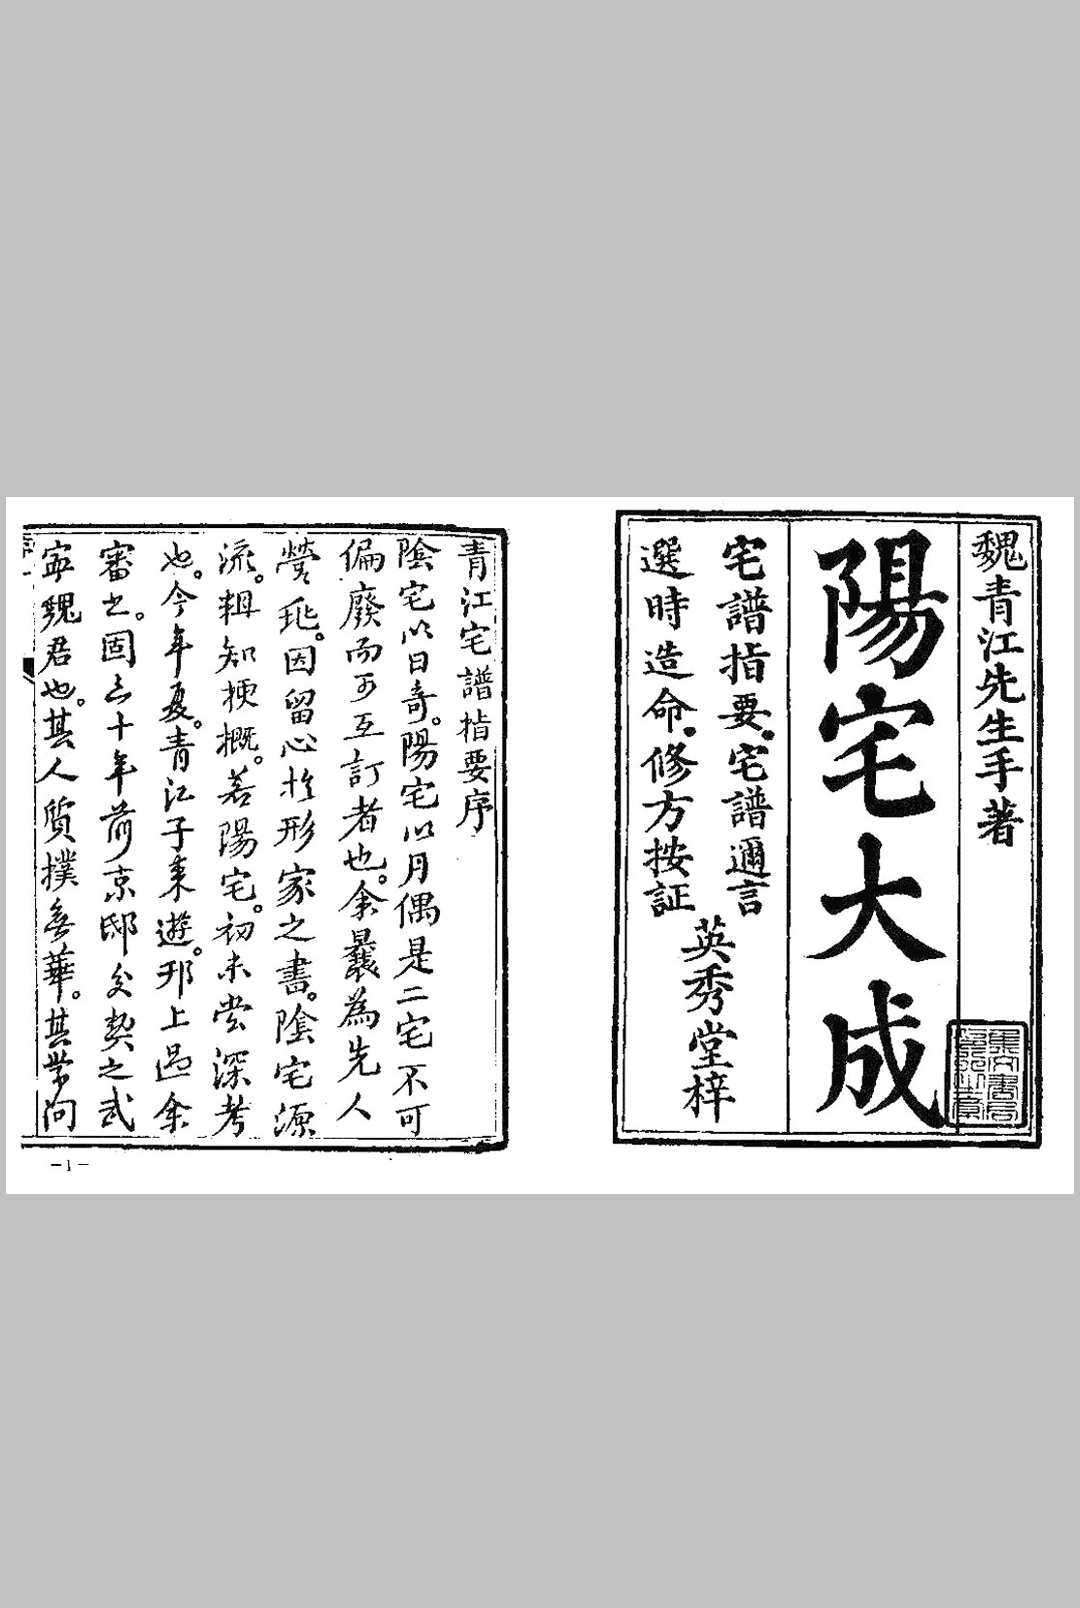 魏青江先生手著
陽宅大成
宅譜指要.宅譜邇言
選時造命.修方按証
英秀堂梓
青江宅譜指要序
陰宅以日奇。陽宅以月偶是二宅不可
偏廢而可互訂者也。余曩為先人
營兆。因留心於形家之書。陰宅源
流。輯知梗概。若陽宅。初未嘗深考
也。今年夏。青江子來遊。邗上過余
審之。固三十年前京邸交契之武
寧魏君也。其人質樸無華。其學問
-1-